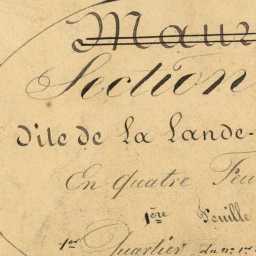 Maur
Section
Dite de La Lande-
En quatre Feu
1ère Feuille
1er Quartier du n° 1